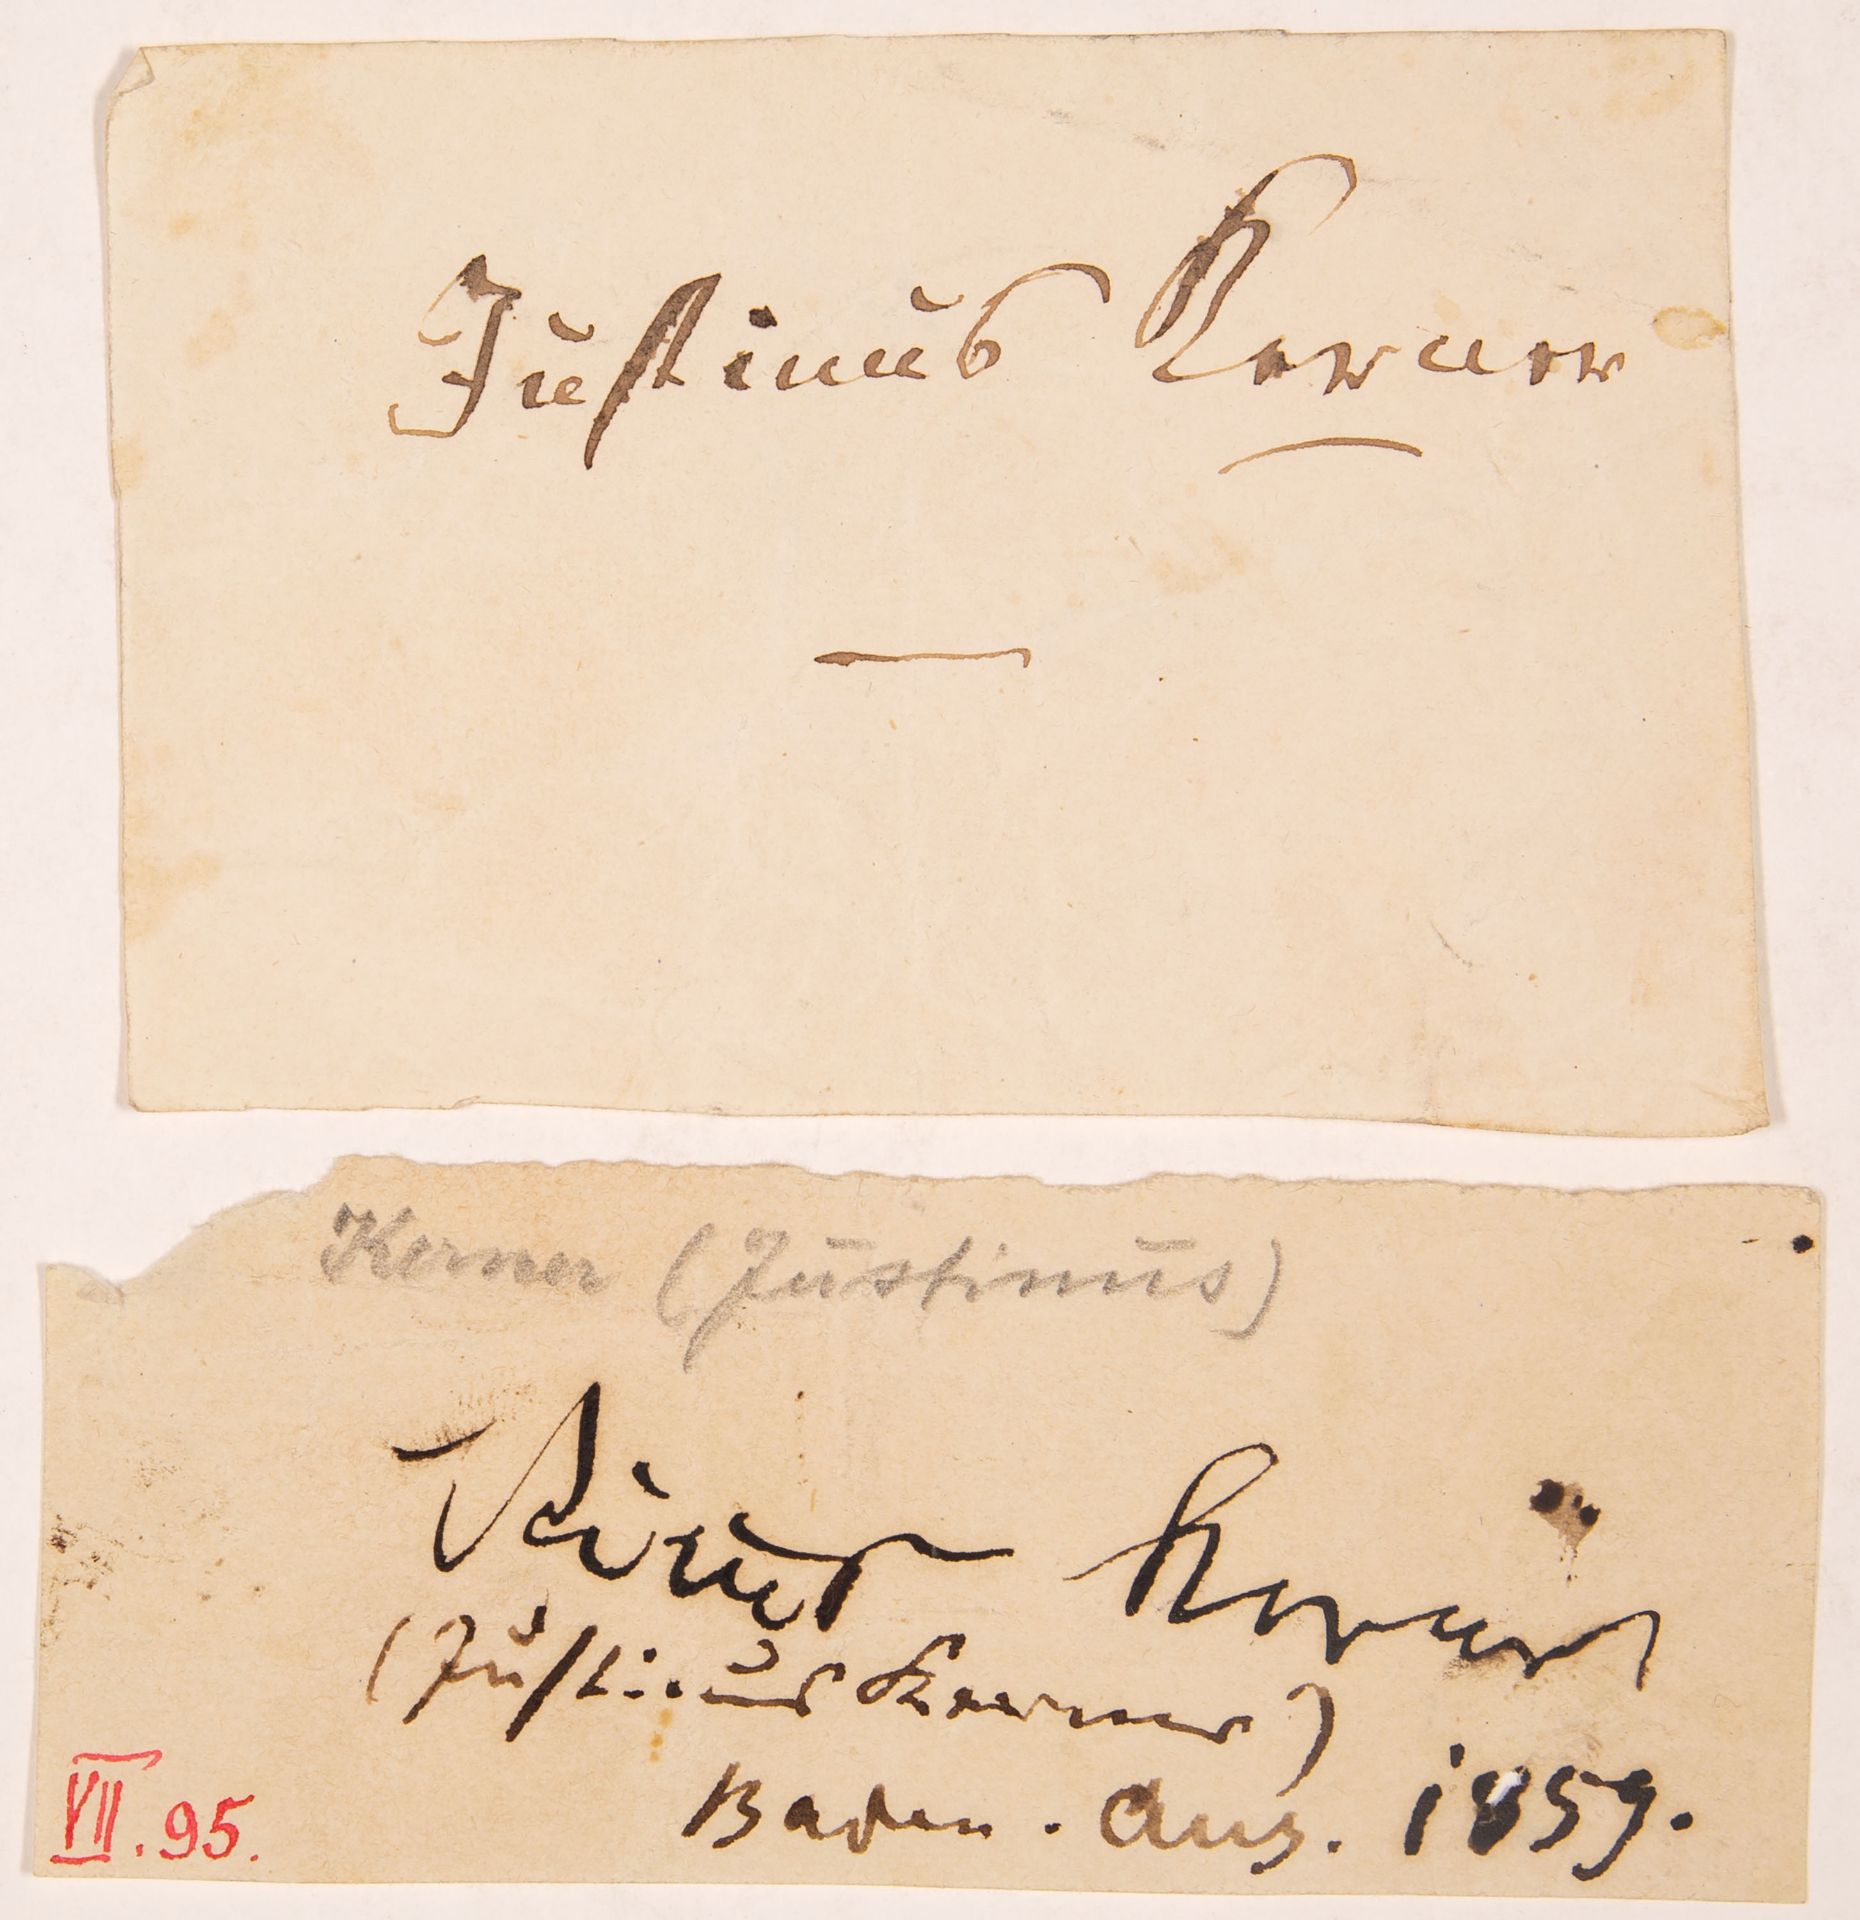 Justinus Kerner
Kerner (Justinus)
Kerner
(Justinus Kerner)
Baden. Aug. 1859.
VII. 95.